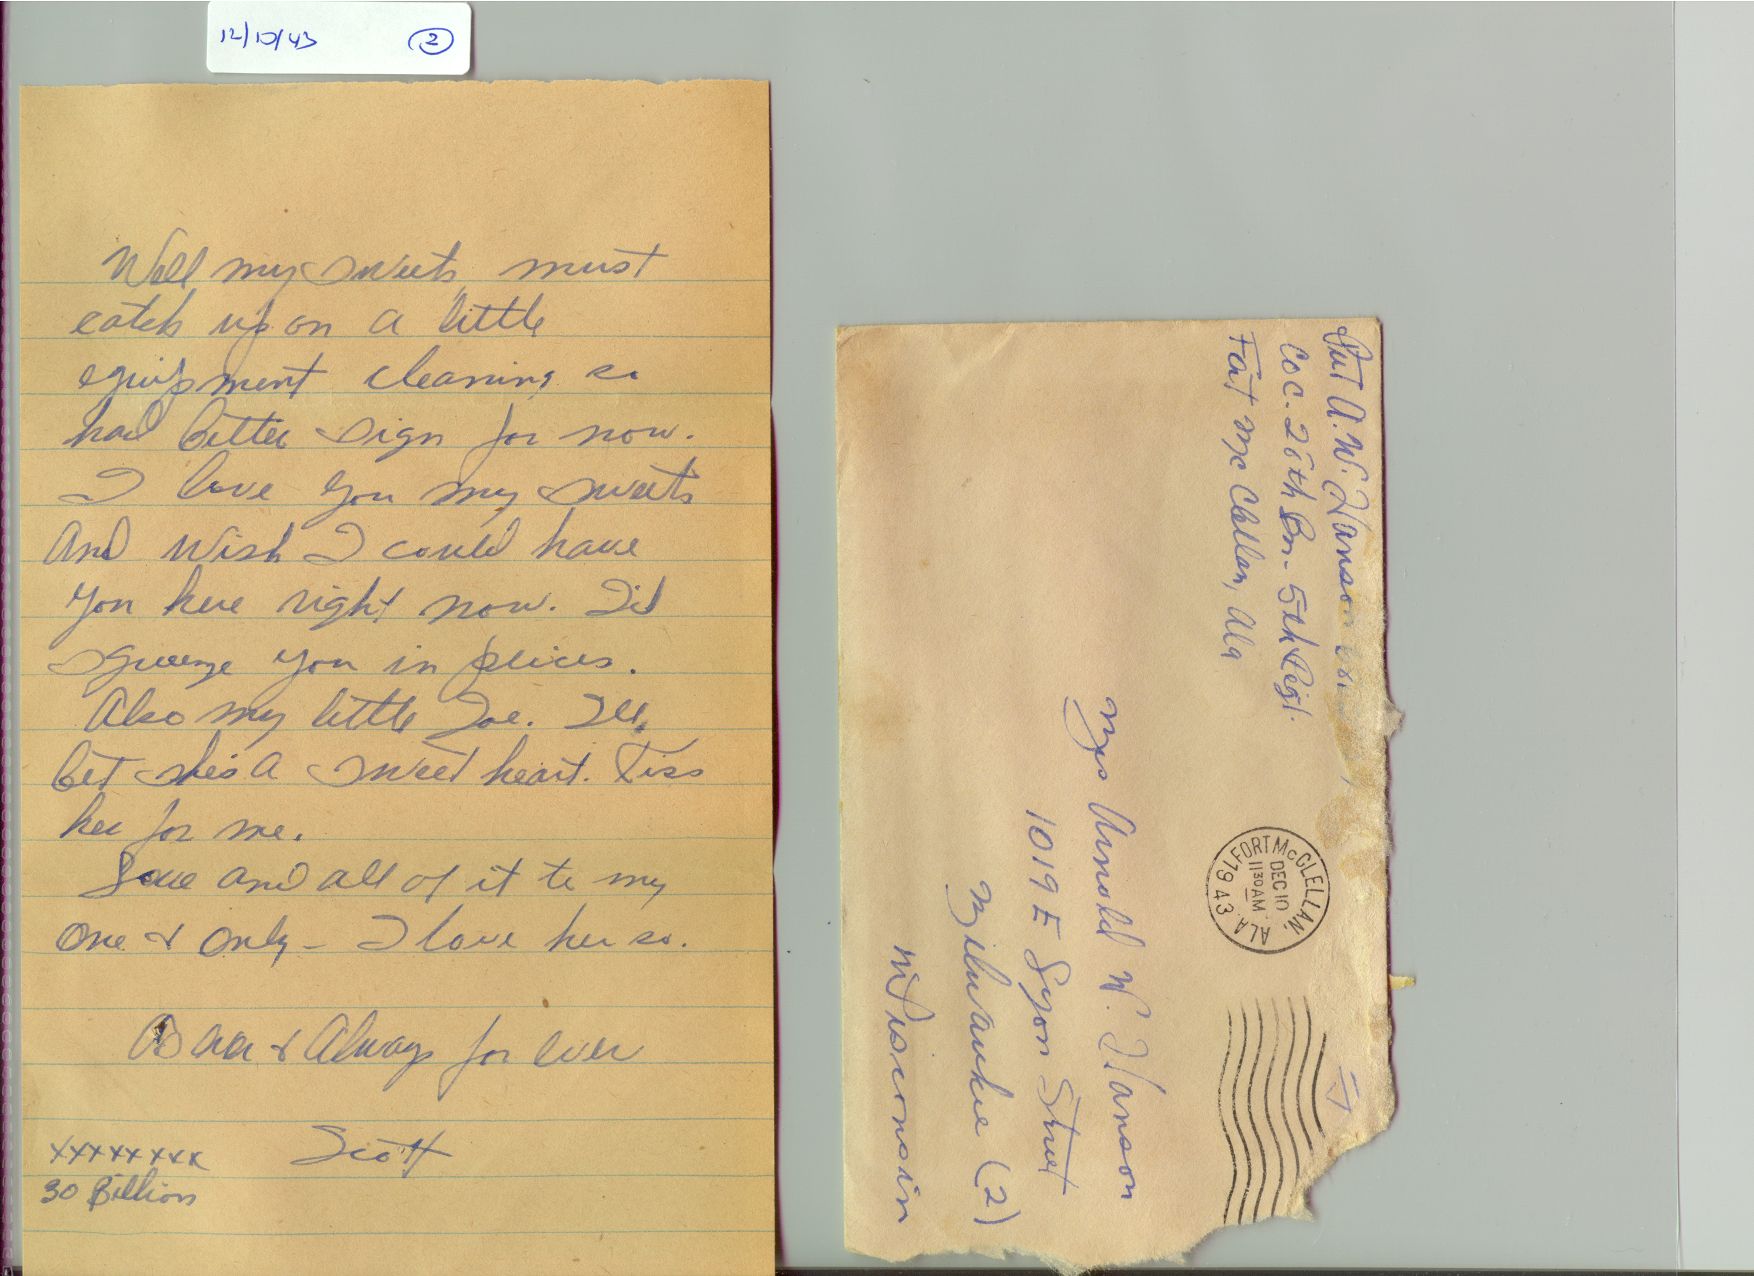 12/10/43 2
Well my sweets must
catch up on a little
equipment cleaning so
had better sign for now.
I love you my sweets
And wish I could have
you here right now. I'd
squeeze you in peices.
Also my little Joe. I'll
bet she's a sweet heart. Kiss
her for me.
Love and all of it to my
one & only - I love her so.
As ever & Always for ever
xxxxxxxx Scott
30 Billion
Pvt A.W. Hanson
Co C. 26th Bn - 5th Regt.
Fort Mc Clellan, Ala
FORT McCLELLAN, ALA.
DEC 10
11 30 AM
1943
Mrs Arnold W. Hanson
1019 E Lyon Street
Milwaukee (2)
Wisconsin